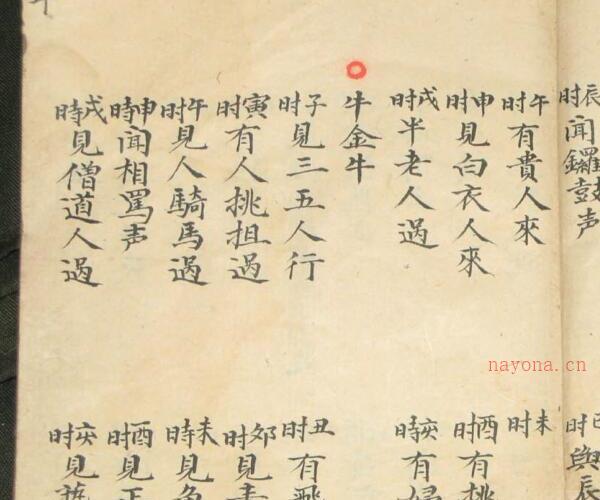 辰时聞鑼鼓声
午时有貴人來
申时見白衣人來
戌时半老人過
牛金牛
子时見三五人行
寅时有人挑担過
午时見人騎馬過
申時聞相罵声
戌時見僧道人過
巳时與辰
未时
酉时有挑
亥时有
丑时有
卯时見
未时見
酉时見
亥时見
nayona.cn